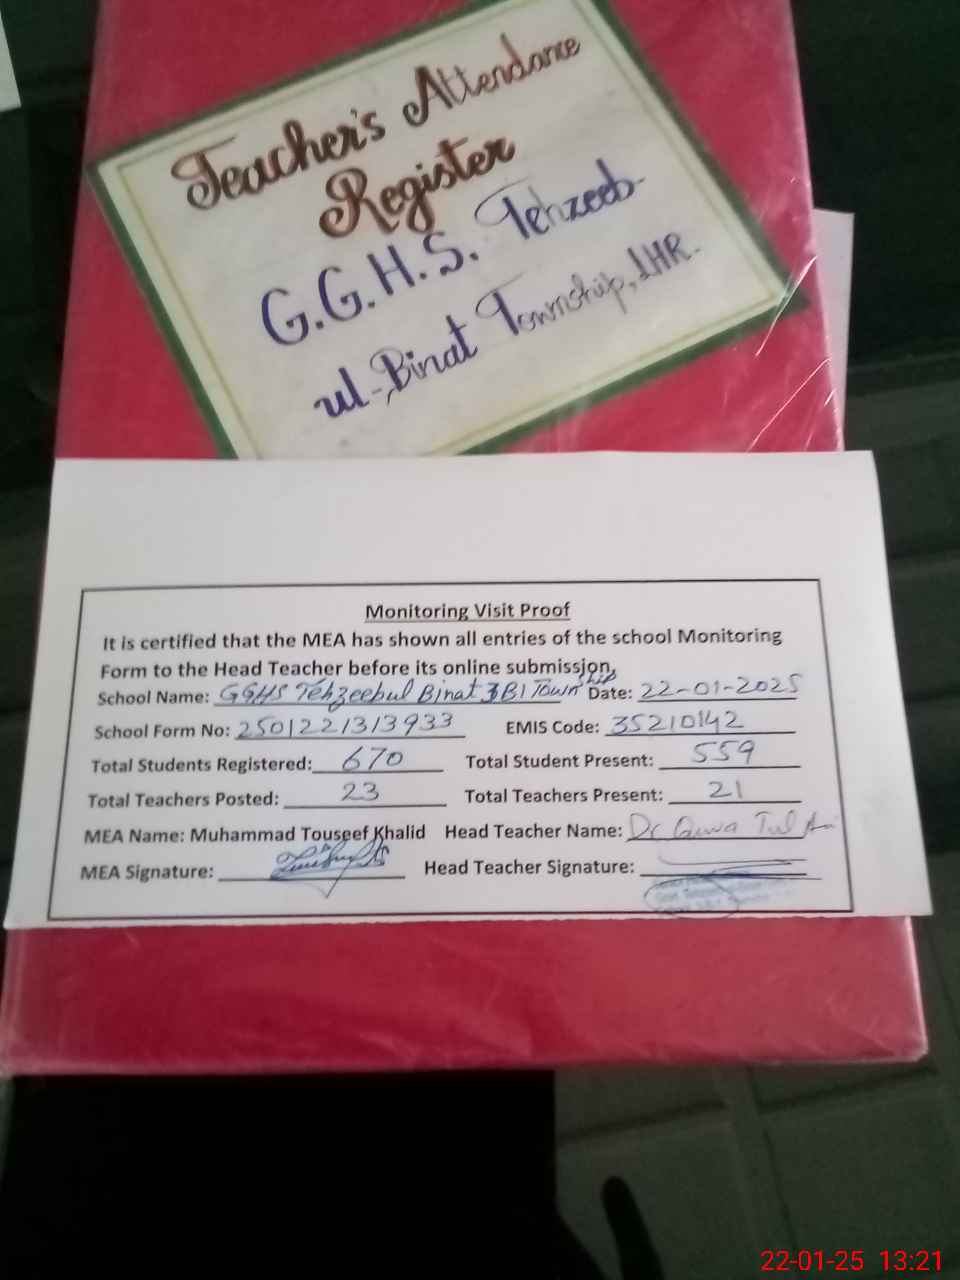 Teacher's Attendance
Register
G.G.H.S. Tehzeeb-
ul-Binat Township, LHR.
Monitoring Visit Proof
It is certified that the MEA has shown all entries of the school Monitoring
Form to the Head Teacher before its online submission.
School Name: GGHS Tehzeebul Binat 3B1 Township Date: 22-01-2025
School Form No: 2501221313933 EMIS Code: 35210142
Total Students Registered: 670 Total Student Present: 559
Total Teachers Posted: 23 Total Teachers Present: 21
MEA Name: Muhammad Touseef Khalid Head Teacher Name: Dr
MEA Signature: Head Teacher Signature:
22-01-25 13:21